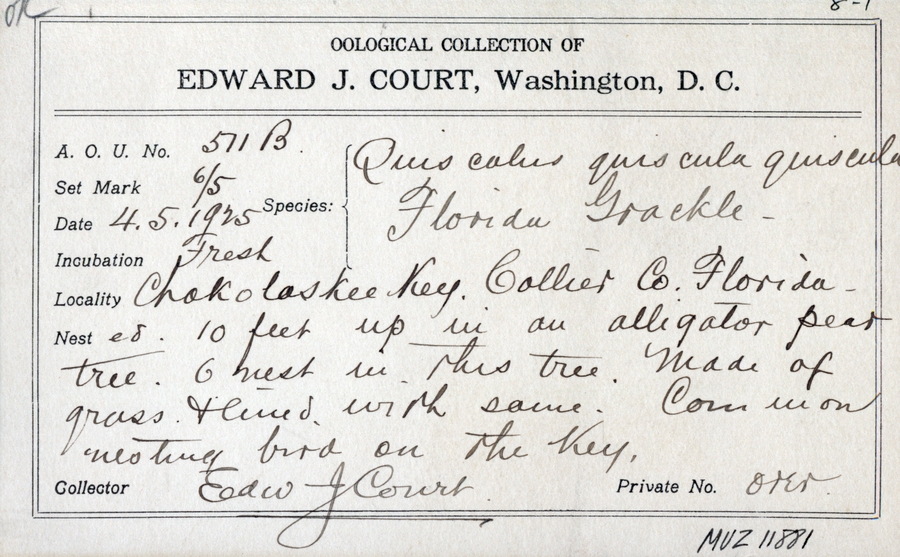 OK
8-1
OOLOGICAL COLLECTION OF
EDWARD J. COURT, Washington, D. C.
A. O. U. No. 511 B.
Quiscalus quiscula quiscula
Set Mark 6/5
Species:
Date 4.5.1925
Florida Grackle -
Incubation Fresh
Locality Chokoloskee Key. Collier Co. Florida -
Nest ed. 10 feet up in an alligator pear
tree. 6 nest in this tree. Made of
grass & lined with same. Common
nesting bird on the Key.
Collector Edw J Court.
Private No. over.
MVZ 11881